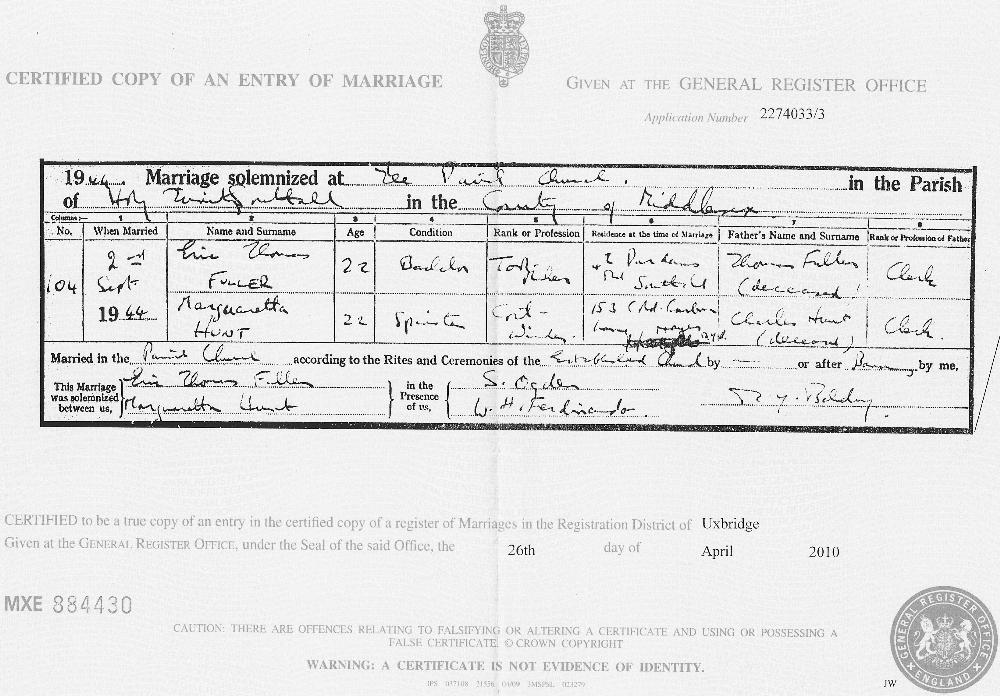 CERTIFIED COPY OF AN ENTRY OF MARRIAGE
GIVEN AT THE GENERAL REGISTER OFFICE
Application Number 2274033/3
1944. Marriage solemnized at The Parish Church. in the Parish
of Holy Trinity Southall in the County of Middlesex
Columns:— 1 2 3 4 5 6 7 8
No. When Married Name and Surname Age Condition Rank or Profession Residence at the time of Marriage Father's Name and Surname Rank or Profession of Father
104 2nd Sept 1944
Eric Thomas FULLER 22 Bachelor Southall Thomas Fuller (deceased) Clerk
Margueretta HUNT 22 Spinster 153 Charles Hunt (deceased) Clerk.
Married in the Parish Church according to the Rites and Ceremonies of the Established Church by — or after Banns by me,
This Marriage was solemnized between us,
Eric Thomas Fuller
Margueretta Hunt
in the Presence of us,
S. Ogden
W. H. Ferdinando.
CERTIFIED to be a true copy of an entry in the certified copy of a register of Marriages in the Registration District of Uxbridge
Given at the GENERAL REGISTER OFFICE, under the Seal of the said Office, the 26th day of April 2010
MXE 884430
CAUTION: THERE ARE OFFENCES RELATING TO FALSIFYING OR ALTERING A CERTIFICATE AND USING OR POSSESSING A
FALSE CERTIFICATE. © CROWN COPYRIGHT
WARNING: A CERTIFICATE IS NOT EVIDENCE OF IDENTITY.
JW
GENERAL REGISTER OFFICE
ENGLAND